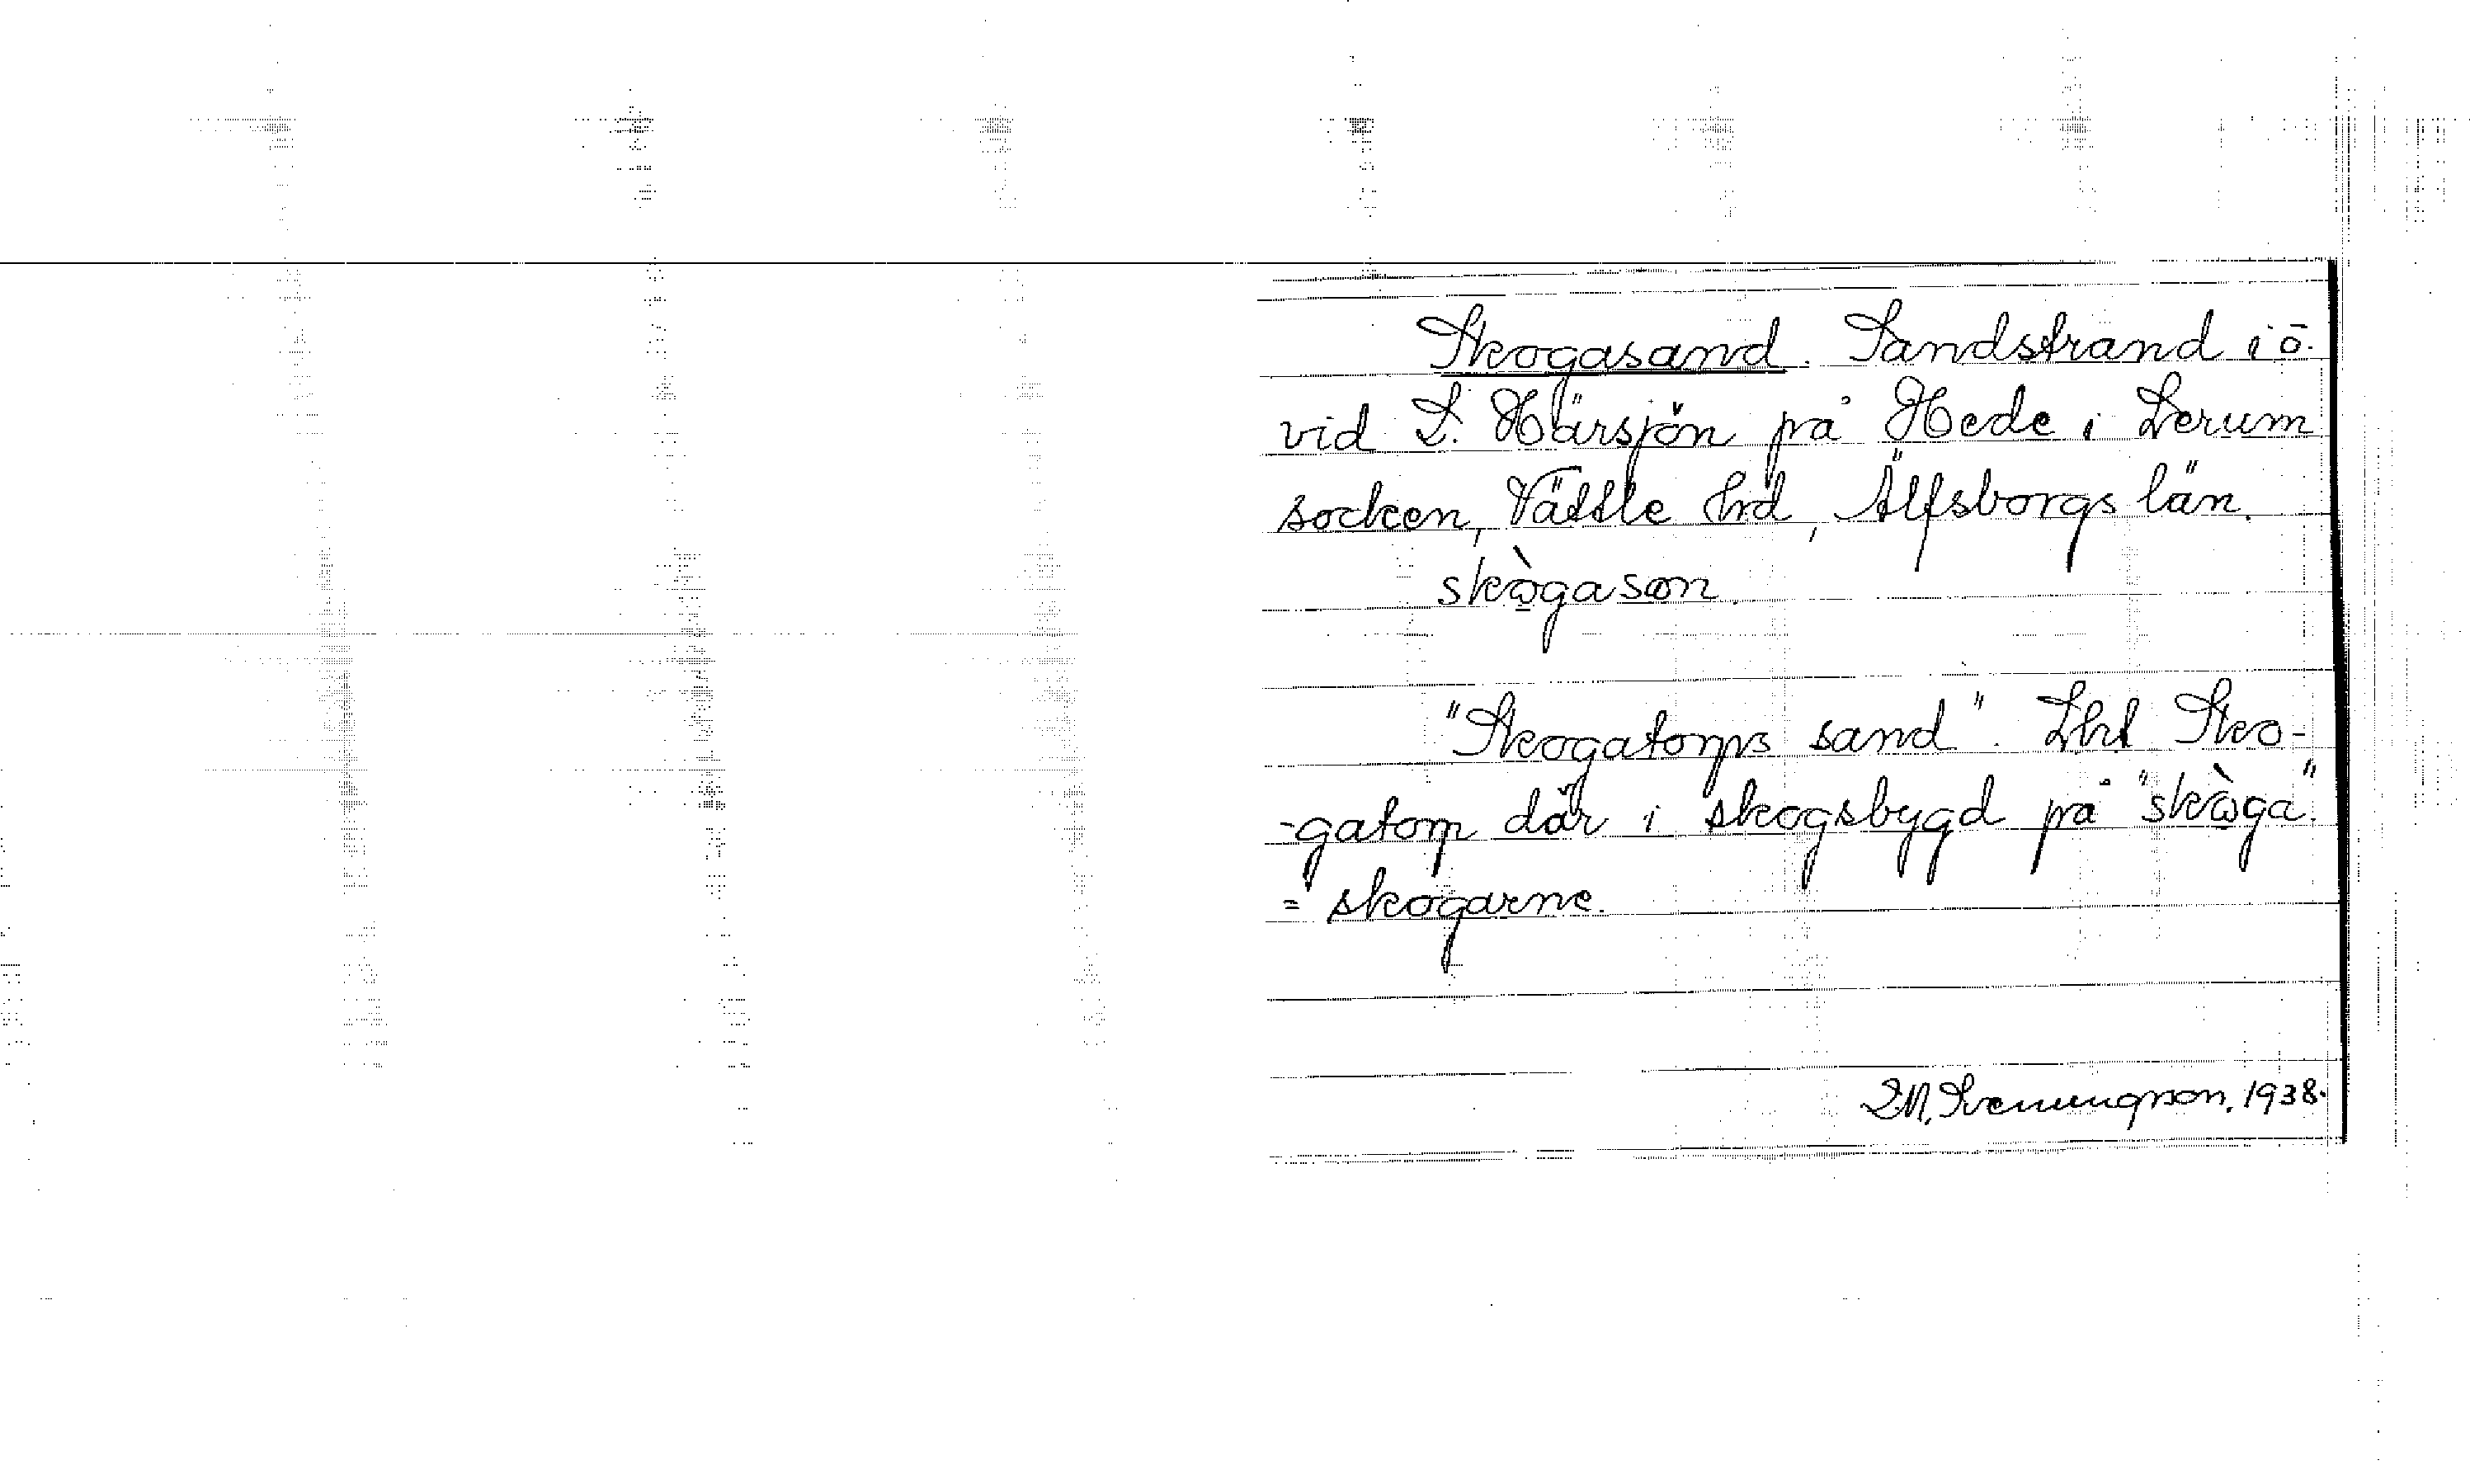 Skogasand. Sandstrand i ö.
vid S. Härsjön på Hede i Lerum
socken, Vättle hrd, Älfsborgs län.
skògasan.
"Skogatorps sand". Lht Sko-
-gatorp där i skogsbygd på "skòga"
= skogarne.
Svenungson. 1938.